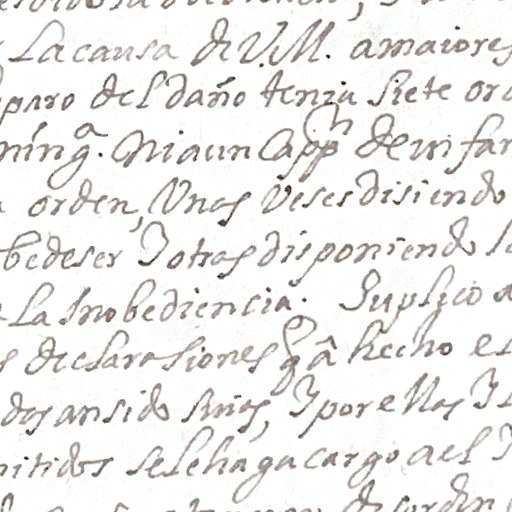 La causa de V.M. a maiores
paro del daño tenia siete ord
ning.ª Ni aun Capp.n de un far
orden, Unas Veses disiendo
bedeser Y otras disponiendo lo
la Inobediencia. Suplico a
s declarasiones q â hecho el
dos an sido suios, Y por ellas Y l
mitidos se le haga cargo a el